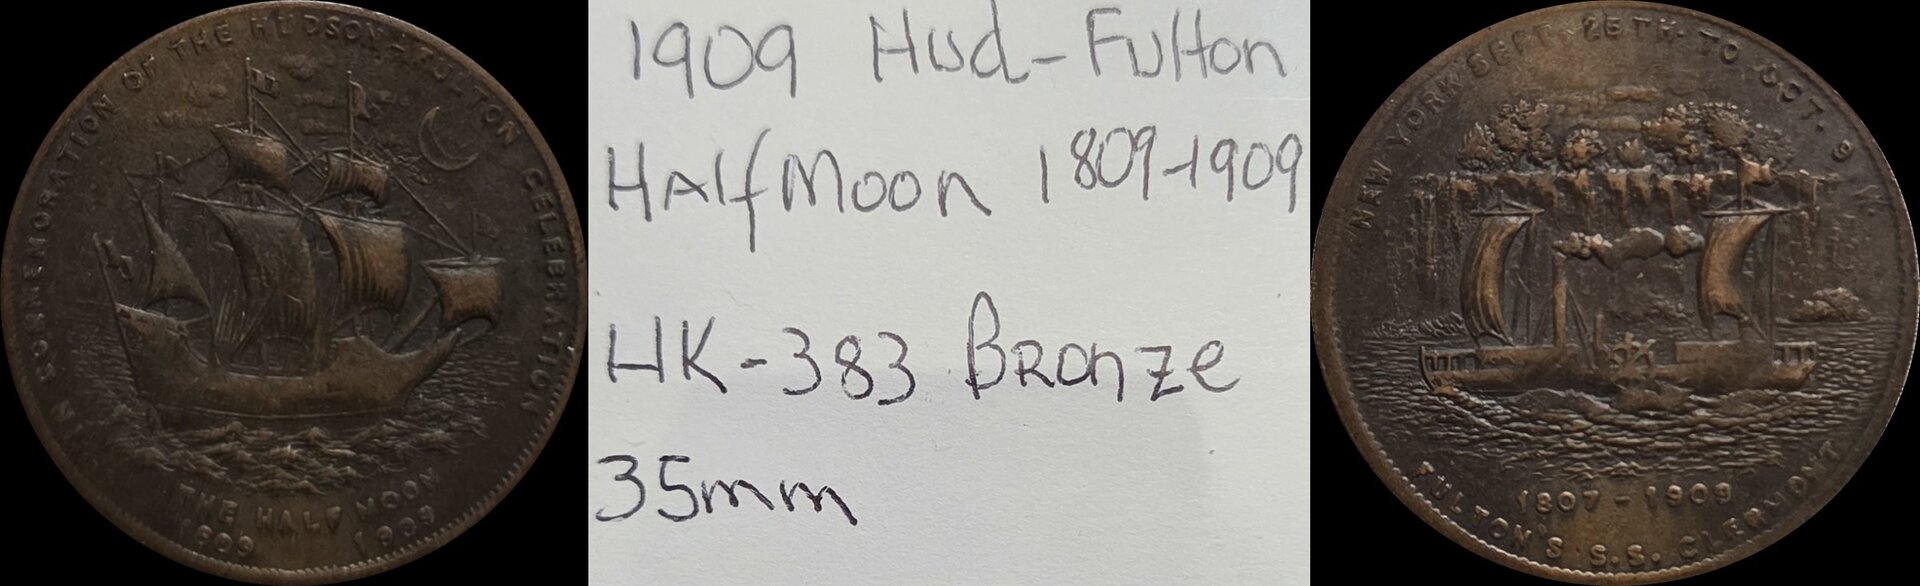 IN COMMEMORATION OF THE HUDSON-FULTON CELEBRATION
THE HALF MOON
1609 1909
1909 Hud-Fulton
Half Moon 1809-1909
HK-383 Bronze
35mm
NEW YORK SEPT. 25TH. TO OCT. 9
1807-1909
FULTON'S S.S. CLERMONT